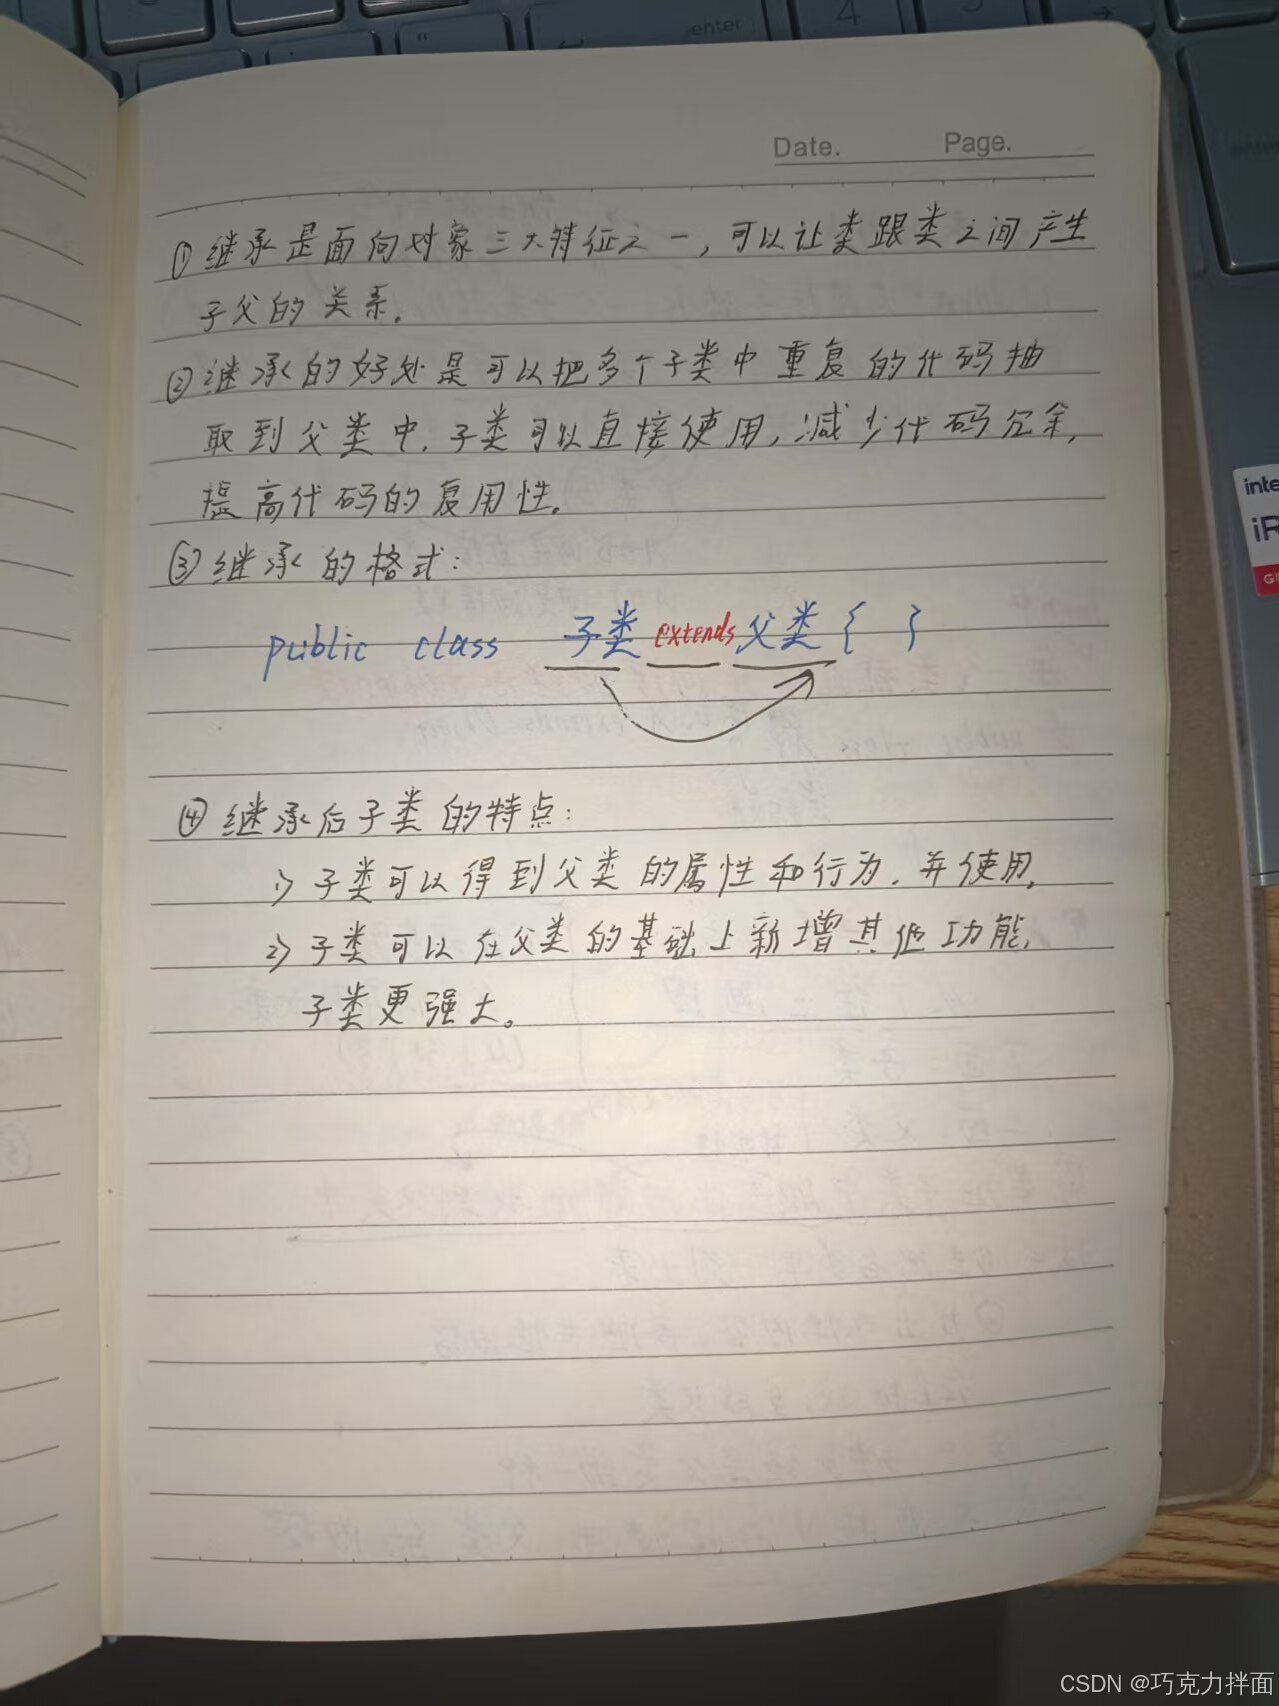 enter
4
Date. Page.
①继承是面向对象三大特征之一,可以让类跟类之间产生
子父的关系.
②继承的好处是可以把多个子类中重复的代码抽
取到父类中.子类可以直接使用,减少代码冗余,
提高代码的复用性。
③继承的格式:
public class 子类 extends 父类{ }
④继承后子类的特点:
1)子类可以得到父类的属性和行为.并使用,
2)子类可以在父类的基础上新增其他功能,
子类更强大。
inte
iR
CSDN @巧克力拌面